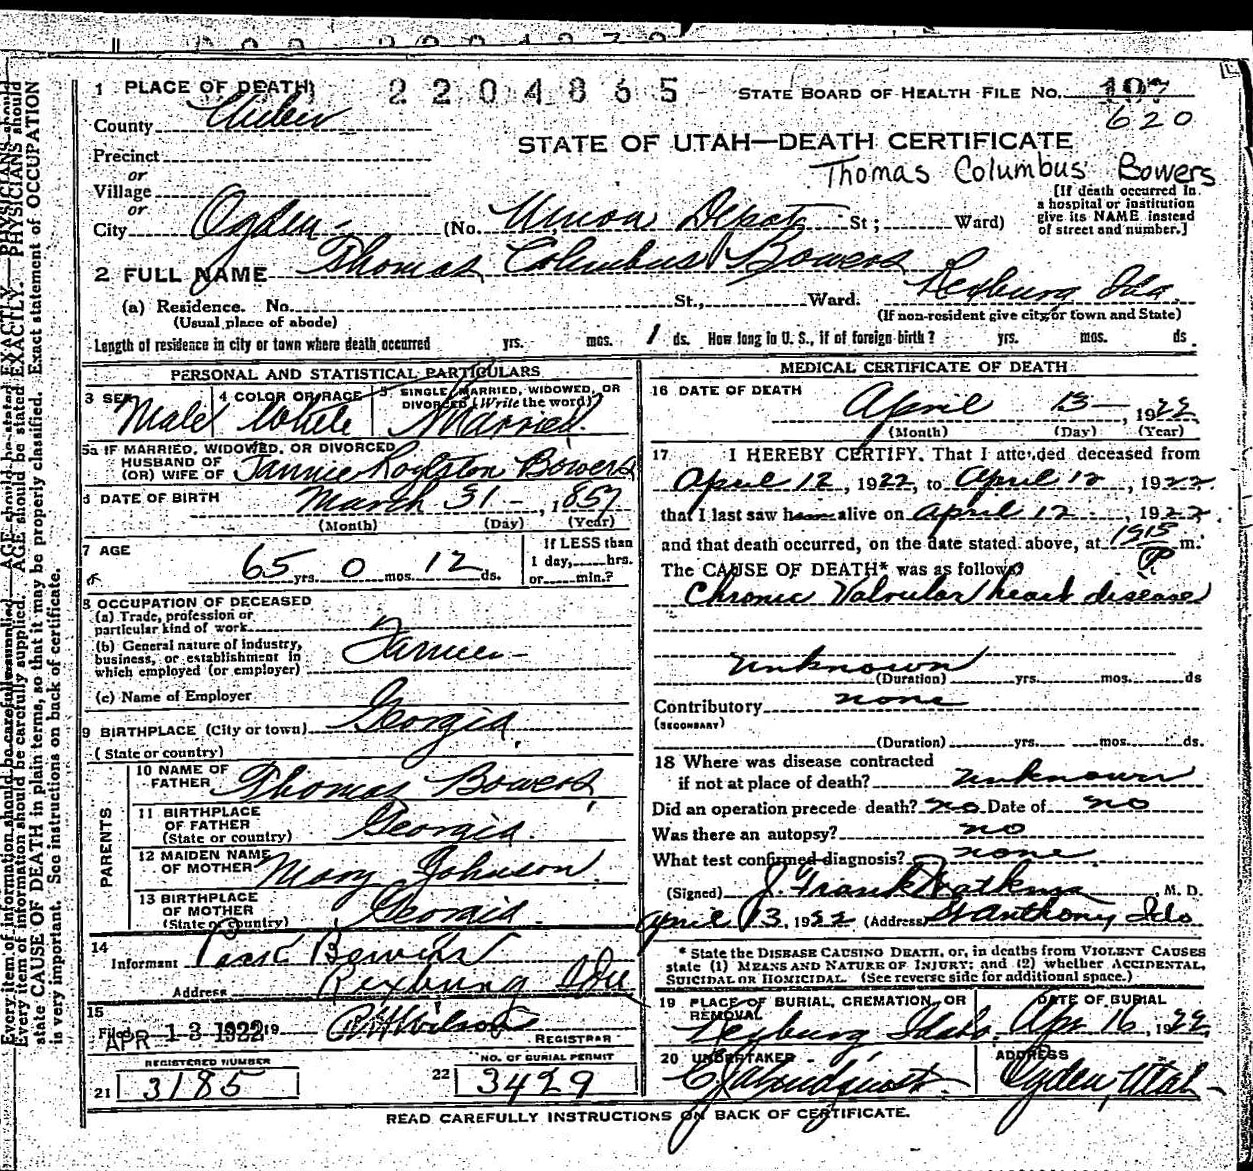 1 PLACE OF DEATH
2204865
STATE BOARD OF HEALTH FILE NO. 197
620
County Weber
STATE OF UTAH—DEATH CERTIFICATE
Thomas Columbus Bowers
Precinct
or
Village
or
City Ogden (No. Union Depot St; Ward)
[If death occurred in a hospital or institution give its NAME instead of street and number.]
2 FULL NAME Thomas Columbus Bowers
(a) Residence. No. St., Ward. Rexburg Ida.
(Usual place of abode) (If non-resident give city or town and State)
Length of residence in city or town where death occurred yrs. mos. 1 ds. How long in U. S., if of foreign birth? yrs. mos. ds.
PERSONAL AND STATISTICAL PARTICULARS
3 SEX Male
4 COLOR OR RACE White
5 SINGLE, MARRIED, WIDOWED, OR DIVORCED (Write the word) Married
5a IF MARRIED, WIDOWED, OR DIVORCED
HUSBAND OF
(OR) WIFE OF Fannie Roylston Bowers
6 DATE OF BIRTH March 31 – , 1857
(Month) (Day) (Year)
7 AGE
65 yrs. 0 mos. 12 ds.
If LESS than
1 day, hrs.
or min.?
8 OCCUPATION OF DECEASED
(a) Trade, profession or
particular kind of work
(b) General nature of industry,
business, or establishment in
which employed (or employer) Farmer
(c) Name of Employer
9 BIRTHPLACE (City or town) Georgia
(State or country)
PARENTS
10 NAME OF
FATHER Thomas Bowers
11 BIRTHPLACE
OF FATHER
(State or country) Georgia
12 MAIDEN NAME
OF MOTHER Mary Johnson
13 BIRTHPLACE
OF MOTHER
(State or country) Georgia
14
Informant Bowers
Address Rexburg Ida
15
Filed APR 13 1922 19
REGISTRAR
REGISTERED NUMBER
21 3185
NO. OF BURIAL PERMIT
22 3429
MEDICAL CERTIFICATE OF DEATH
16 DATE OF DEATH
April 13 – , 1922
(Month) (Day) (Year)
17 I HEREBY CERTIFY, That I attended deceased from
April 12, 1922, to April 12, 1922.
that I last saw h alive on April 12, 1922
and that death occurred, on the date stated above, at 1915 P m.
The CAUSE OF DEATH* was as follows
Chronic Valvular heart disease
unknown
(Duration) yrs. mos. ds
Contributory none
(SECONDARY)
(Duration) yrs. mos. ds.
18 Where was disease contracted
if not at place of death? unknown
Did an operation precede death? no Date of no
Was there an autopsy? no
What test confirmed diagnosis? none
(Signed) J. Frank Watkins, M. D.
April 13, 1922 (Address) St Anthony Ido
* State the DISEASE CAUSING DEATH, or, in deaths from VIOLENT CAUSES
state (1) MEANS AND NATURE OF INJURY; and (2) whether ACCIDENTAL,
SUICIDAL OR HOMICIDAL (See reverse side for additional space.)
19 PLACE OF BURIAL, CREMATION, OR REMOVAL
Rexburg Idaho
DATE OF BURIAL
Apr 16, 1922
20 UNDERTAKER
ADDRESS
Ogden, Utah
READ CAREFULLY INSTRUCTIONS ON BACK OF CERTIFICATE.
Every item of information should be carefully supplied. AGE should be stated EXACTLY. PHYSICIANS should
state CAUSE OF DEATH in plain terms, so that it may be properly classified. Exact statement of OCCUPATION
is very important. See instructions on back of certificate.